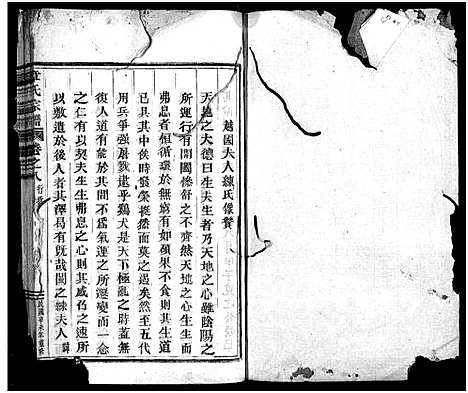 越國夫人練氏像贊
天地之大德曰生夫生者乃天地之心雖陰陽之
所運行有開闔慘舒之不齊然天地之心生生而
弗息者恒循環於無窮有如碩果不食則其生道
已具其中俟時裳榮挺然而莫之遏矣然至五代
用兵爭強屠戮逮乎鷄犬是天下極亂之時蓋無
復人道有能於其間不爲氣運之所遷變而一念
之仁有以契夫生生弗息之心則其感召之速所
以敷遺於後人者其澤曷有旣哉閩之練夫人歸
章氏宗譜 卷之八
民國辛未年重修